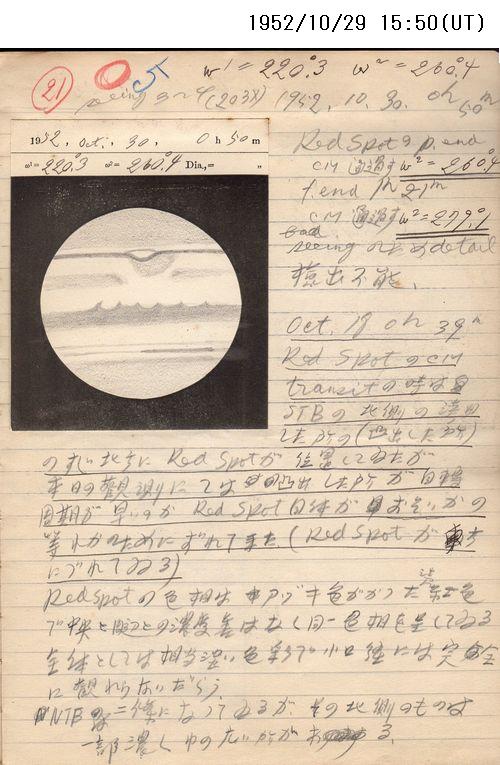 1952/10/29 15:50(UT)
21 ω¹=220°.3 ω²=260°.4
1952. 10. 30. 0h 50m
1952, Oct., 30, 0 h 50 m
ω¹=220°.3 ω²=260°.4 Dia.,= "
Red Spot の p. end
CM 通過す ω²=260°.4
f. end 1h 21m
CM 通過す ω²=279°.1
bad
seeing のため detail
検出不能.
Oct. 18 0h 39m
Red Spot の CM
transit の時は
STB の北側の
した所の(凸出した所)
のすぐ北方に Red Spot が位置してゐたが
本日の観測にては凸出した所が自轉
周期が早いのか Red Spot 自体がおそいのか
等れかのためにずれて (Red Spot が
にづれてゐる)
Red Spot の色相は アヅキ色がかった 色
で中央と周辺との濃度差はなく同一色相を呈してゐる
全体としては相当淡い色彩で小口径には完全
に観れらないだらう
NTB は二條になってゐるが その北側のものは
一部濃く巾の広い所がある.